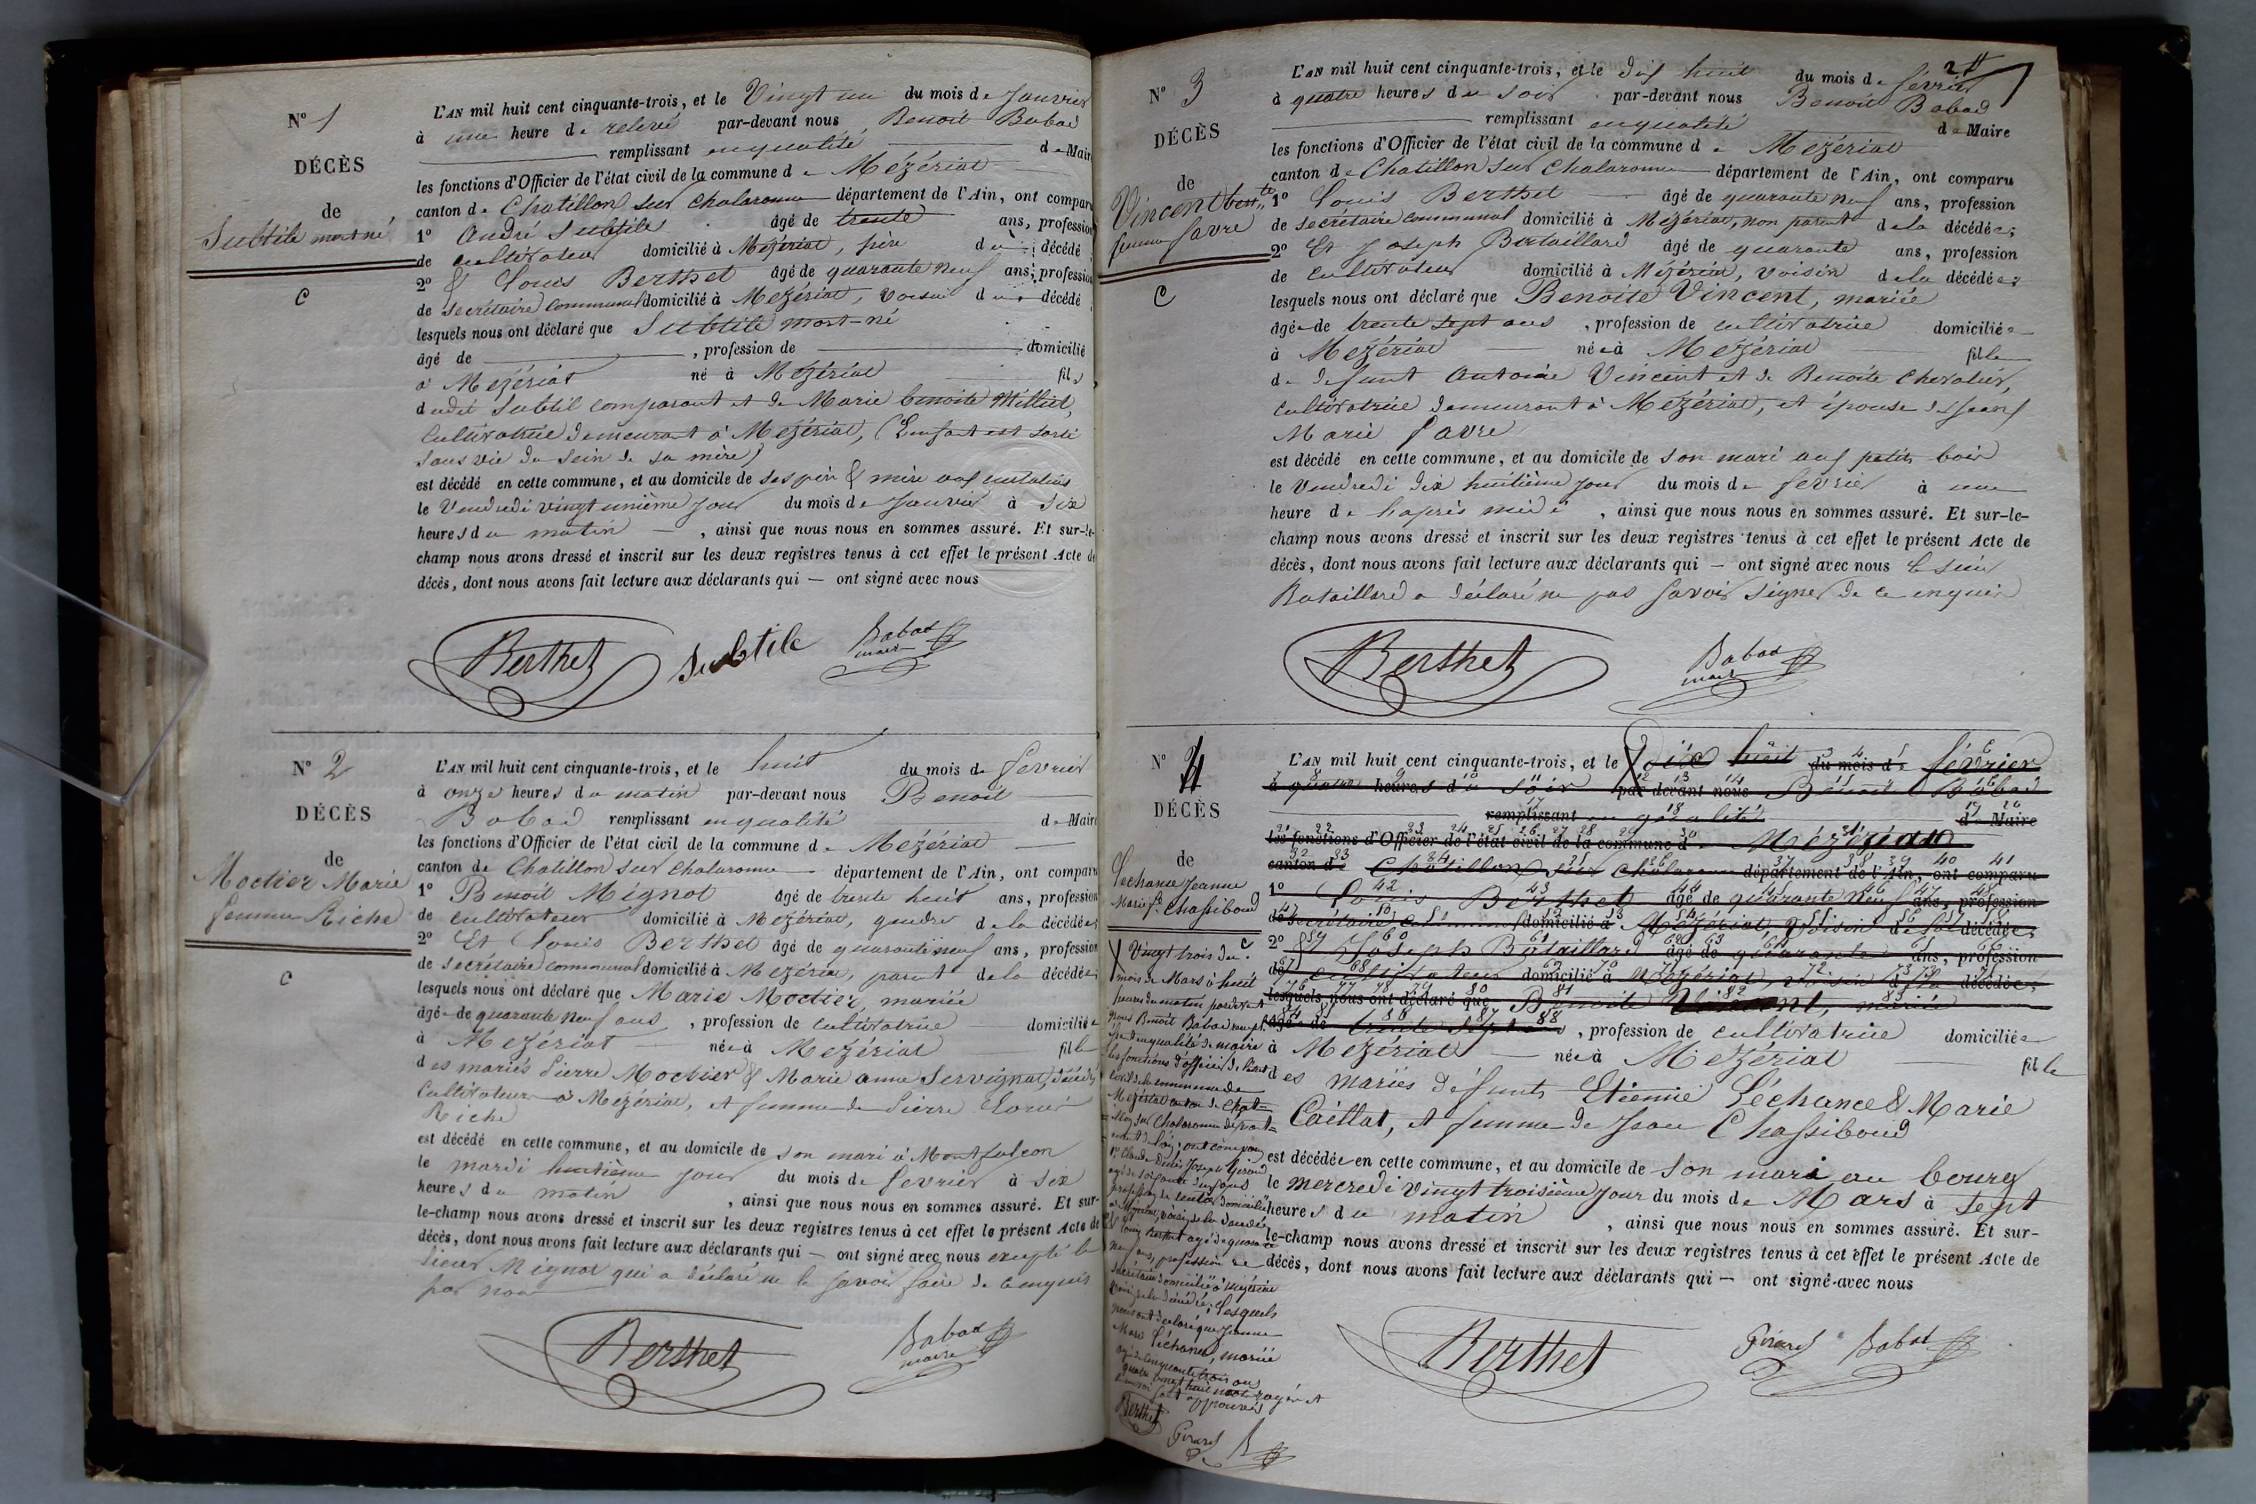 N° 1
DÉCÈS
de
Subtile mort né
C
L'AN mil huit cent cinquante-trois, et le Vingt un du mois de Janvier
à une heure de relevé par-devant nous Benoit Babad
remplissant en qualité de Maire
les fonctions d'Officier de l'état civil de la commune de Mézériat
canton de Chatillon sur Chalaronne département de l'Ain, ont comparu
1° André Subtile âgé de trente ans, profession
de cultivateur domicilié à Mézériat, père du décédé
2° & Louis Berthet âgé de quarante neuf ans, profession
de secrétaire communal domicilié à Mézériat, voisin du décédé
lesquels nous ont déclaré que Subtile mort-né
âgé de , profession de domicilié
à Mézériat né à Mézériat fils
dudit Subtil comparant et de Marie benoite Milliet,
cultivatrice demeurant à Mézériat, (L'enfant est sorti
sans vie du sein de sa mère)
est décédé en cette commune, et au domicile de ses père & mère aux
le Vendredi vingt unième jour du mois de Janvier à six
heures du matin , ainsi que nous nous en sommes assuré. Et sur-le-
champ nous avons dressé et inscrit sur les deux registres tenus à cet effet le présent Acte de
décès, dont nous avons fait lecture aux déclarants qui — ont signé avec nous
Berthet Subtile Babad
maire
N° 2
DÉCÈS
de
Moctier Marie
femme Riche
C
L'AN mil huit cent cinquante-trois, et le huit du mois de fevrier
à onze heures du matin par-devant nous Benoit
Babad remplissant en qualité de Maire
les fonctions d'Officier de l'état civil de la commune de Mézériat
canton de Chatillon sur Chalaronne département de l'Ain, ont comparu
1° Benoit Mignot âgé de trente huit ans, profession
de cultivateur domicilié à Mézériat, gendre de la décédée
2° Et Louis Berthet âgé de quarante neuf ans, profession
de secrétaire communal domicilié à Mézériat, parent de la décédée
lesquels nous ont déclaré que Marie Moctier, mariée
âgée de quarante neuf ans , profession de cultivatrice domiciliée
à Mézériat née à Mézériat fille
des mariés Pierre Moctier & Marie anne Servignat, décédés
cultivateurs à Mézériat, et femme de Pierre Louis
Riche
est décédé en cette commune, et au domicile de son mari à Montfalcon
le mardi huitième jour du mois de fevrier à six
heures du matin , ainsi que nous nous en sommes assuré. Et sur-
le-champ nous avons dressé et inscrit sur les deux registres tenus à cet effet le présent Acte de
décès, dont nous avons fait lecture aux déclarants qui — ont signé avec nous excepté le
sieur Mignot qui a déclaré ne le savoir faire de ce enquis
par nous
Berthet Babad
maire
N° 3
DÉCÈS
de
Vincent bente
femme favre
C
L'AN mil huit cent cinquante-trois, et le dix huit du mois de février
à quatre heures du soir par-devant nous Benoit Babad
remplissant en qualité de Maire
les fonctions d'Officier de l'état civil de la commune de Mézériat
canton de Chatillon sur Chalaronne département de l'Ain, ont comparu
1° Louis Berthet âgé de quarante neuf ans, profession
de secrétaire communal domicilié à Mézériat, non parent de la décédée;
2° Et Joseph Bataillard âgé de quarante ans, profession
de cultivateur domicilié à Mézériat, voisin de la décédée;
lesquels nous ont déclaré que Benoite Vincent, mariée
âgée de trente sept ans , profession de cultivatrice domiciliée
à Mézériat née à Mézériat fille
de defunt Antoine Vincent et de Benoite Chevalier,
cultivatrice demeurant à Mézériat, et épouse de Jean
Marie favre
est décédé en cette commune, et au domicile de son mari aux petits bois
le Vendredi dix huitième jour du mois de fevrier à une
heure de l'après midi , ainsi que nous nous en sommes assuré. Et sur-le-
champ nous avons dressé et inscrit sur les deux registres tenus à cet effet le présent Acte de
décès, dont nous avons fait lecture aux déclarants qui — ont signé avec nous le sieur
Bataillard a déclaré ne pas savoir signer de ce enquis
Berthet Babad
maire
N° 4
DÉCÈS
de
Lechance Jeanne
Marie fe Chassiboud
L'AN mil huit cent cinquante-trois, et le dix huit du mois de février
à quatre heures du soir par-devant nous Benoit Babad
remplissant en qualité de Maire
les fonctions d'Officier de l'état civil de la commune de Mézériat
canton de Chatillon sur Chalaronne département de l'Ain, ont comparu
1° Louis Berthet âgé de quarante neuf ans, profession
de secrétaire communal domicilié à Mézériat, voisin de la décédée;
2° & Joseph Bataillard âgé de quarante ans, profession
de cultivateur domicilié à Mézériat, voisin de la décédée;
lesquels nous ont déclaré que Benoite Vincent, mariée
âgée de trente sept ans , profession de cultivatrice domiciliée
à Mézériat née à Mézériat fille
des mariés défunts Etienne Léchance & Marie
Caillat, et femme de Jean Chassiboud
est décédée en cette commune, et au domicile de son mari au bourg
le mercredi vingt troisième jour du mois de Mars à sept
heures du matin , ainsi que nous nous en sommes assuré. Et sur-
le-champ nous avons dressé et inscrit sur les deux registres tenus à cet effet le présent Acte de
décès, dont nous avons fait lecture aux déclarants qui — ont signé avec nous
Berthet Girard Babad
Vingt trois du
mois de Mars à huit
heures du matin pardevant
nous Benoit Babad
en qualité de maire
les fonctions d'officier de l'état
civil de la commune de
Mézériat canton de Chat-
illon sur Chalaronne départ-
ement de l'ain, ont comparu
1° Claude Denis Joseph Girard
âgé de soixante deux ans
profession de domicilié
à Mézériat, voisin de la décédée
& Louis Berthet âgé de quarante
neuf ans, profession de
secrétaire domicilié à Mézériat
voisin de la décédée, lesquels
nous ont déclaré que Jeanne
Marie Léchance, mariée
âgée de cinquante trois ans
quatre vingt huit mots rayés et
approuvés
Berthet Girard B